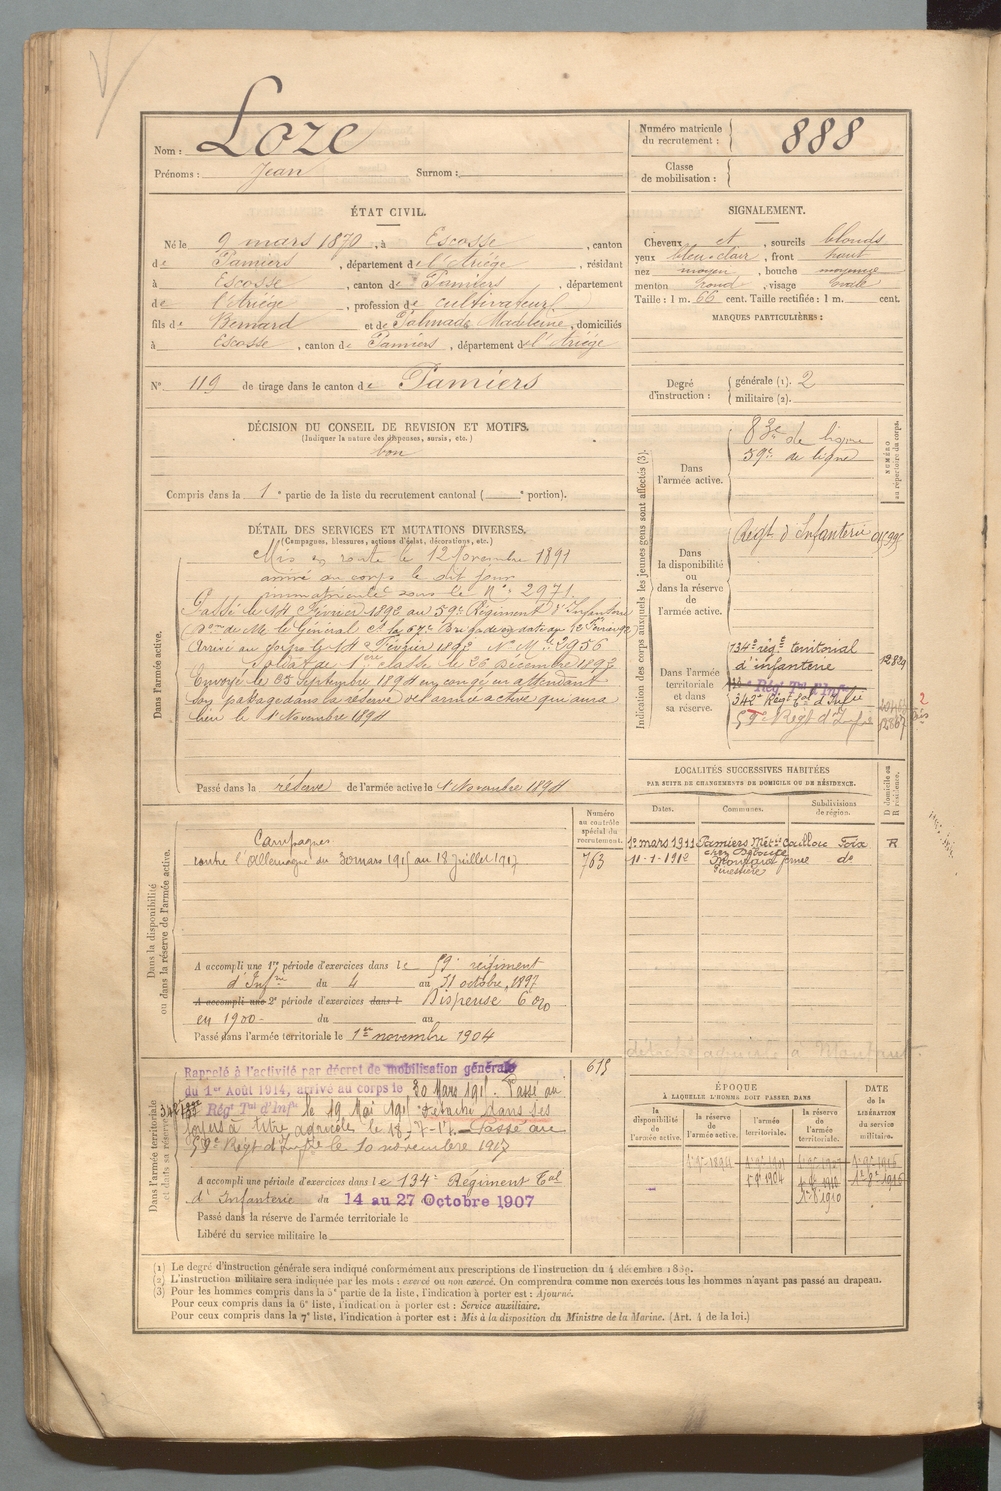 Nom : Loze
Prénoms : Jean Surnom :
Numéro matricule du recrutement : 888
Classe de mobilisation :
ÉTAT CIVIL.
Né le 9 mars 1870, à Escosse, canton
de Pamiers, département de l'Ariége, résidant
à Escosse, canton de Pamiers, département
de l'Ariége, profession de cultivateur
fils de Bernard et de Palmade Madeleine, domiciliés
à Escosse, canton de Pamiers, département de l'Ariége
N° 119 de tirage dans le canton de Pamiers
SIGNALEMENT.
Cheveux et, sourcils blonds
yeux bleu-clair, front haut
nez moyen, bouche moyenne
menton rond, visage ovale
Taille : 1 m. 66 cent. Taille rectifiée : 1 m. cent.
MARQUES PARTICULIÈRES :
Degré d'instruction : générale (1). 2
militaire (2).
DÉCISION DU CONSEIL DE REVISION ET MOTIFS.
(Indiquer la nature des dispenses, sursis, etc.)
bon
Compris dans la 1e partie de la liste du recrutement cantonal ( e portion).
DÉTAIL DES SERVICES ET MUTATIONS DIVERSES.
(Campagnes, blessures, actions d'éclat, décorations, etc.)
Dans l'armée active.
Mis en route le 12 Novembre 1891
arrivé au corps le dit jour
immatriculé sous le N° 2971.
Passé le 14 Février 1892 au 59e Régiment d'Infanterie
de Mr le Général Ct la 67e Brigade en date du 12 Février 92
Arrivé au corps le 14 Février 1892 N° Mle 2956
Soldat de 1ère classe le 26 Décembre 1892
Envoyé le 25 Septembre 1894 en congé en attendant
son passage dans la réserve de l'armée active qui aura
lieu le 1er Novembre 1894
Passé dans la réserve de l'armée active le 1er Novembre 1894
Indication des corps auxquels les jeunes gens sont affectés (3).
NUMÉRO au répertoire du corps.
Dans l'armée active.
de ligne
59e de ligne
Dans la disponibilité ou dans la réserve de l'armée active.
Régt d'Infanterie
Dans l'armée territoriale et dans sa réserve.
134e régt territorial
d'infanterie
Régt Tal d'Infie
342e Régt Tal d'Infie
59e Régt d'Infie
LOCALITÉS SUCCESSIVES HABITÉES
PAR SUITE DE CHANGEMENTS DE DOMICILE OU DE RÉSIDENCE.
Dates. Communes. Subdivisions de région. D domicile ou R résidence.
1er mars 1911 Pamiers Foix R
11-1-1912 do
Dans la disponibilité ou dans la réserve de l'armée active.
Numéro au contrôle spécial du recrutement.
763
Campagnes
contre l'Allemagne du 30 mars 1915 au 18 juillet 1917
A accompli une 1re période d'exercices dans le 59e régiment
d'Infrie du 4 au 31 octobre, 1897
A accompli une 2e période d'exercices dans l Dispense
en 1900 - du au
Passé dans l'armée territoriale le 1er novembre 1904
Dans l'armée territoriale et dans sa réserve.
Rappelé à l'activité par décret de mobilisation générale
du 1er Août 1914, arrivé au corps le 30 Mars 1915. Passé au
Régt Tal d'Infie le 19 Mai 191
foyers à titre agricole le 18-7-17. Passé au
59e Régt d'Infie le 10 novembre 1917
A accompli une période d'exercices dans le 134e Régiment Tal
d'Infanterie du 14 au 27 Octobre 1907
Passé dans la réserve de l'armée territoriale le
Libéré du service militaire le
ÉPOQUE
À LAQUELLE L'HOMME DOIT PASSER DANS
la disponibilité de l'armée active. la réserve de l'armée active. l'armée territoriale. la réserve de l'armée territoriale.
DATE de la LIBÉRATION du service militaire.
(1) Le degré d'instruction générale sera indiqué conformément aux prescriptions de l'instruction du 4 décembre 1889.
(2) L'instruction militaire sera indiquée par les mots : exercé ou non exercé. On comprendra comme non exercés tous les hommes n'ayant pas passé au drapeau.
(3) Pour les hommes compris dans la 5e partie de la liste, l'indication à porter est : Ajourné.
Pour ceux compris dans la 6e liste, l'indication à porter est : Service auxiliaire.
Pour ceux compris dans la 7e liste, l'indication à porter est : Mis à la disposition du Ministre de la Marine. (Art. 4 de la loi.)